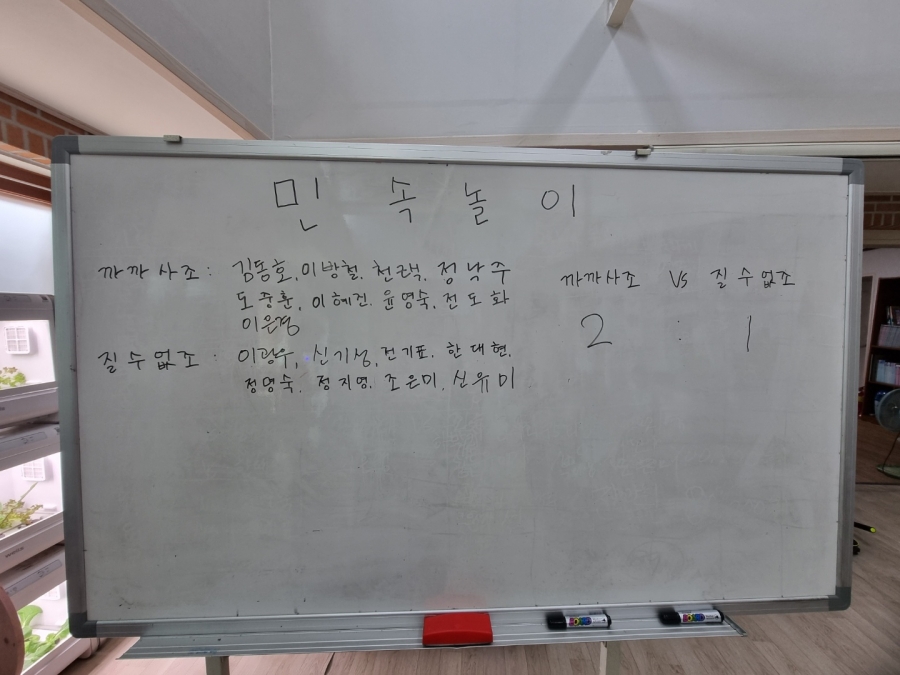 민속놀이
까까사조 : 김동호, 이방철, 천택, 정낙주
도중훈, 이혜진. 윤영숙, 전도화
이은경
질수없조 : 이광우, 신기성, 전기표. 한대현.
정영숙. 정지영. 조은미, 신유미
까까사조 VS 질수없조
2 : 1